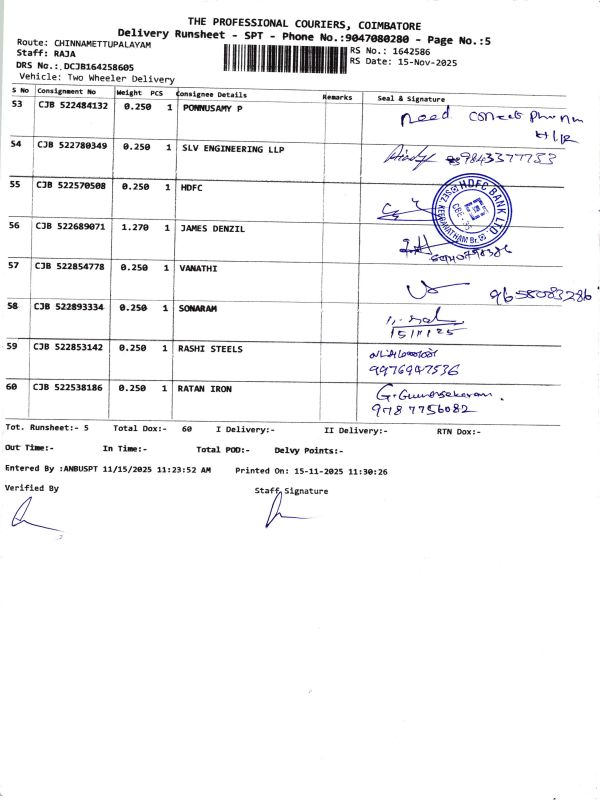 THE PROFESSIONAL COURIERS, COIMBATORE
Delivery Runsheet - SPT - Phone No.:9047080280 - Page No.:5
Route: CHINNAMETTUPALAYAM
RS No.: 1642586
Staff: RAJA
RS Date: 15-Nov-2025
DRS No.:.DCJB164258605
Vehicle: Two Wheeler Delivery
S No Consignment No Weight PCS Consignee Details Remarks Seal & Signature
53 CJB 522484132 0.250 1 PONNUSAMY P need
54 CJB 522780349 0.250 1 SLV ENGINEERING LLP 9843377753
55 CJB 522570508 0.250 1 HDFC HDFC BANK LTD
56 CJB 522689071 1.270 1 JAMES DENZIL
57 CJB 522854778 0.250 1 VANATHI 9658083286
58 CJB 522893334 0.250 1 SONARAM 15/11/25
59 CJB 522853142 0.250 1 RASHI STEELS
9976947536
60 CJB 522538186 0.250 1 RATAN IRON G. Gunasekaran.
9787756082
Tot. Runsheet:- 5 Total Dox:- 60 I Delivery:- II Delivery:- RTN Dox:-
Out Time:- In Time:- Total POD:- Delvy Points:-
Entered By :ANBUSPT 11/15/2025 11:23:52 AM Printed On: 15-11-2025 11:30:26
Verified By Staff Signature